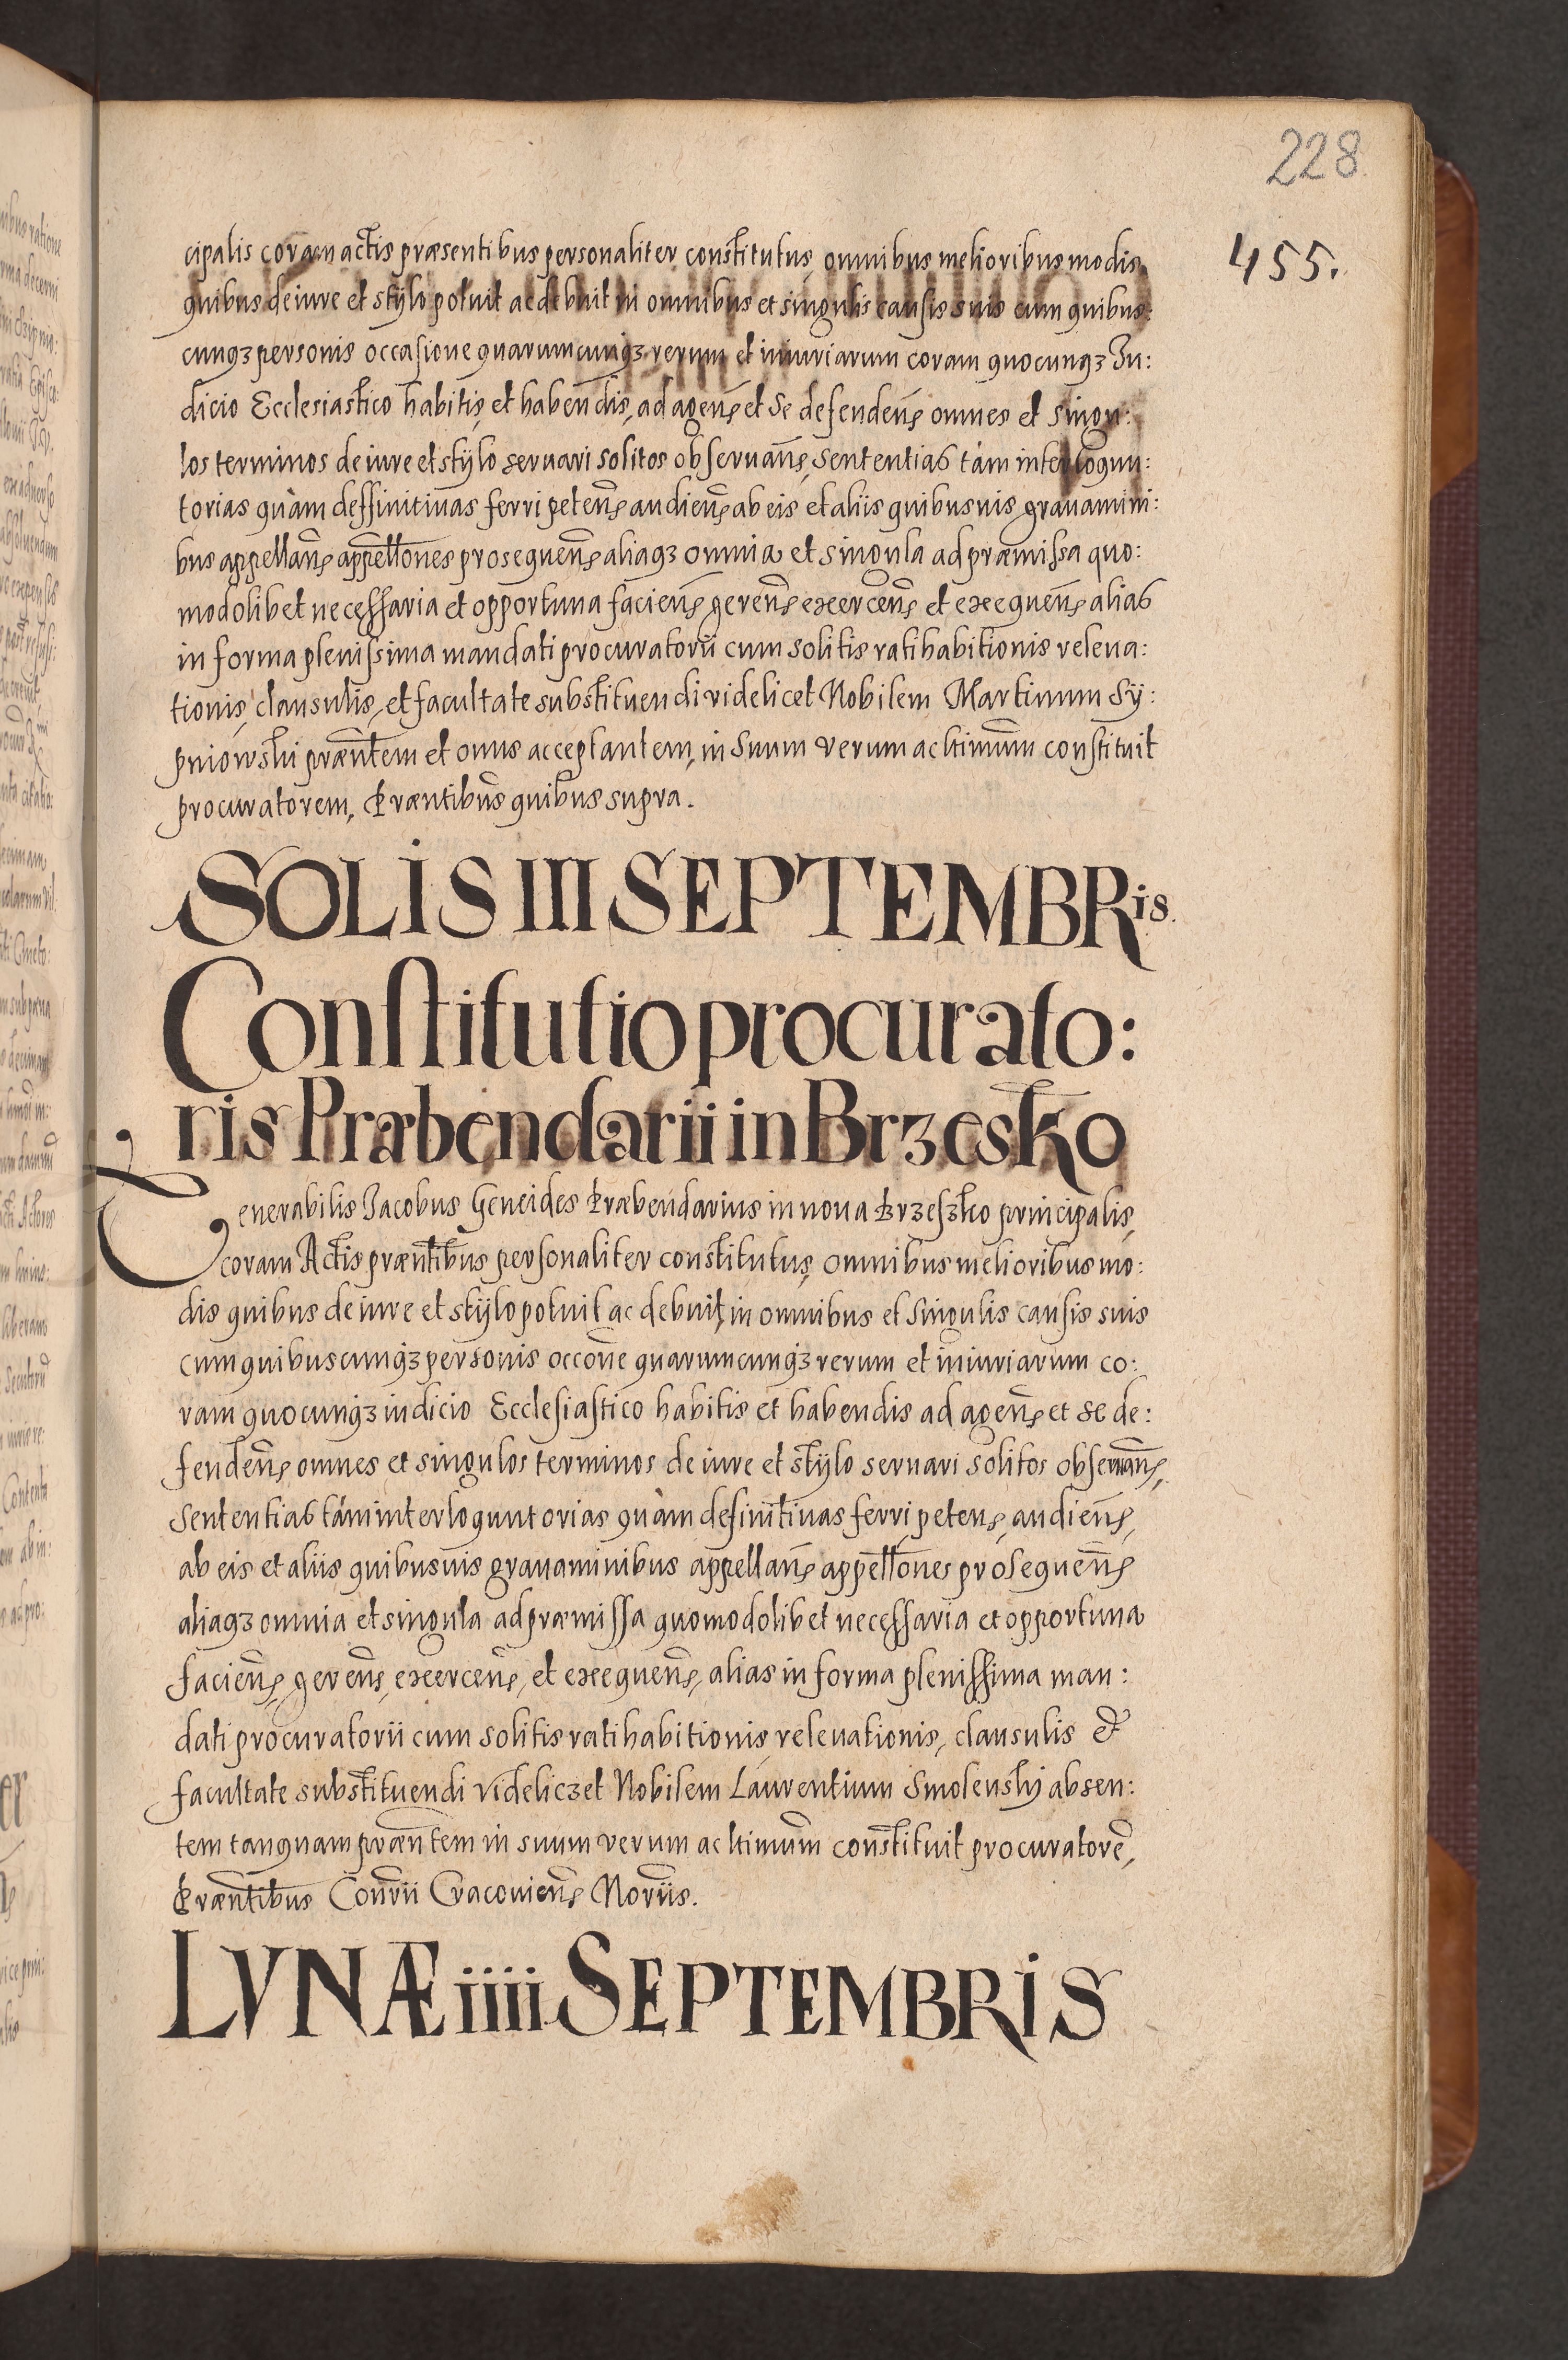 228
455.
cipalis coram actis præsentibus personaliter constitutus, omnibus melioribus modis,
quibus de iure et stÿlo potuit ac debuit in omnibus et singulis causis suis cum quibus:
cunqȝ personis occasione quarumcunqȝ rerum et iniuriarum coram quocunqȝ Iu:
dicio Ecclesiastico habitis, et habendis, ad agenꝭ et se defendenꝭ omnes et singu:
los terminos de iure et stÿlo seruari solitos obseruanꝭ, sententias tàm interloqun:
torias quàm deffinitiuas ferri petenꝭ audienꝭ ab eis et aliis quibusuis grauamini:
bus appellanꝭ appellōnes prosequenꝭ aliaqȝ omnia et singula ad præmissa quo:
modolibet necessaria et opportuna facienꝭ gerenꝭ exercenꝭ et exequenꝭ alias
in forma plenissima mandati procuratorii cum solitis ratihabitionis releua:
tionis, clausulis, et facultate substituendi videlicet Nobilem Martinum Sÿ:
pniowski præn̄tem et onus acceptantem, in suum verum ac ltimūm constituit
procuratorem, Præntibūs quibus supra.
SOLIS III SEPTEMBRis.
Constitutio procurato:
ris Præbendarii in Brzesko
Venerabilis Jacobus Geneides Præbendarius in noua Brzeszko principalis,
coram Actis præn̄tibus personaliter constitutus, omnibus melioribus mo:
dis quibus de iure et stÿlo potuit ac debuit, in omnibus et singulis causis suis
cum quibuscunqȝ personis occōne quarumcunqȝ rerum et iniuriarum co:
ram quocunqȝ iudicio Ecclesiastico habitis et habendis ad agenꝭ et se de:
fendenꝭ omnes et singulos terminos de iure et stÿlo seruari solitos obseruanꝭ,
sententias tám interloquntorias quàm definitiuas ferri petenꝭ, audienꝭ,
ab eis et aliis quibusuis grauaminibus appellanꝭ appellōnes prosequenꝭ
aliaqȝ omnia et singula ad præmissa quomodolibet necessaria et opportuna
facienꝭ, gerenꝭ, exercenꝭ, et exequenꝭ, alias in forma plenissima man:
dati procuratorii cum solitis ratihabitionis, releuationis, clausulis &
facultate substituendi videliczet Nobilem Laurentium Smolenski absen:
tem tanquam præn̄tem in suum verum ac ltimūm constituit procuratorē,
Præn̄tibus Con̄rii Cracouienꝭ Nor̄iis.
LVNÆ iiii SEPTEMBRiS